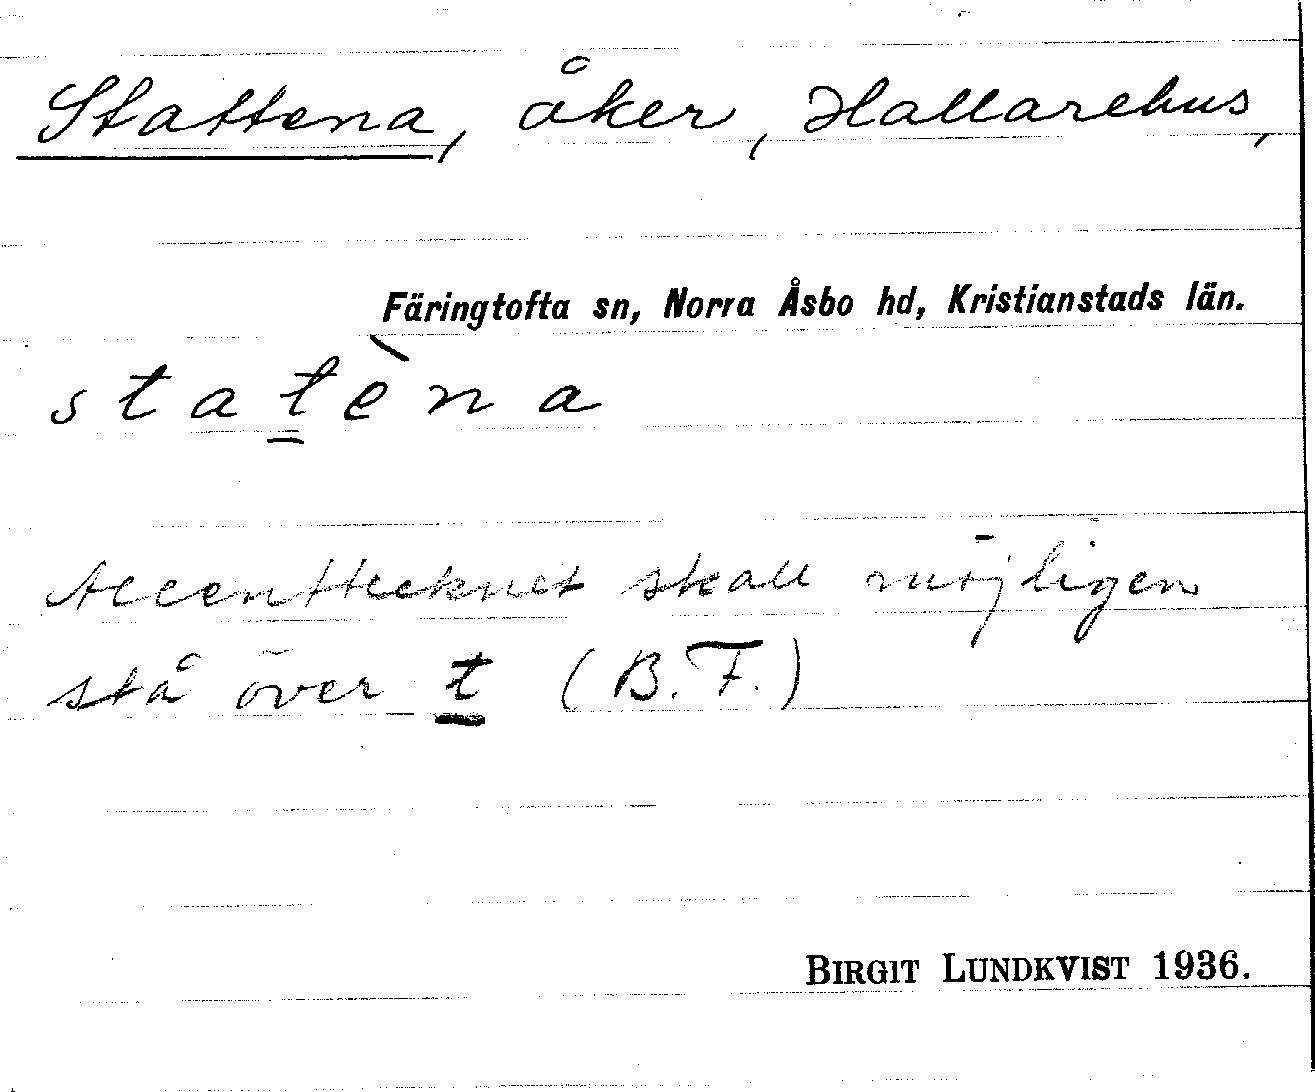 Stattena, åker, Hallarehus,
Färingtofta sn, Norra Åsbo hd, Kristianstads län.
stat̲èna
Accenttecknet skall möjligen
stå över t̲ (B.F.)
BIRGIT LUNDKVIST 1936.